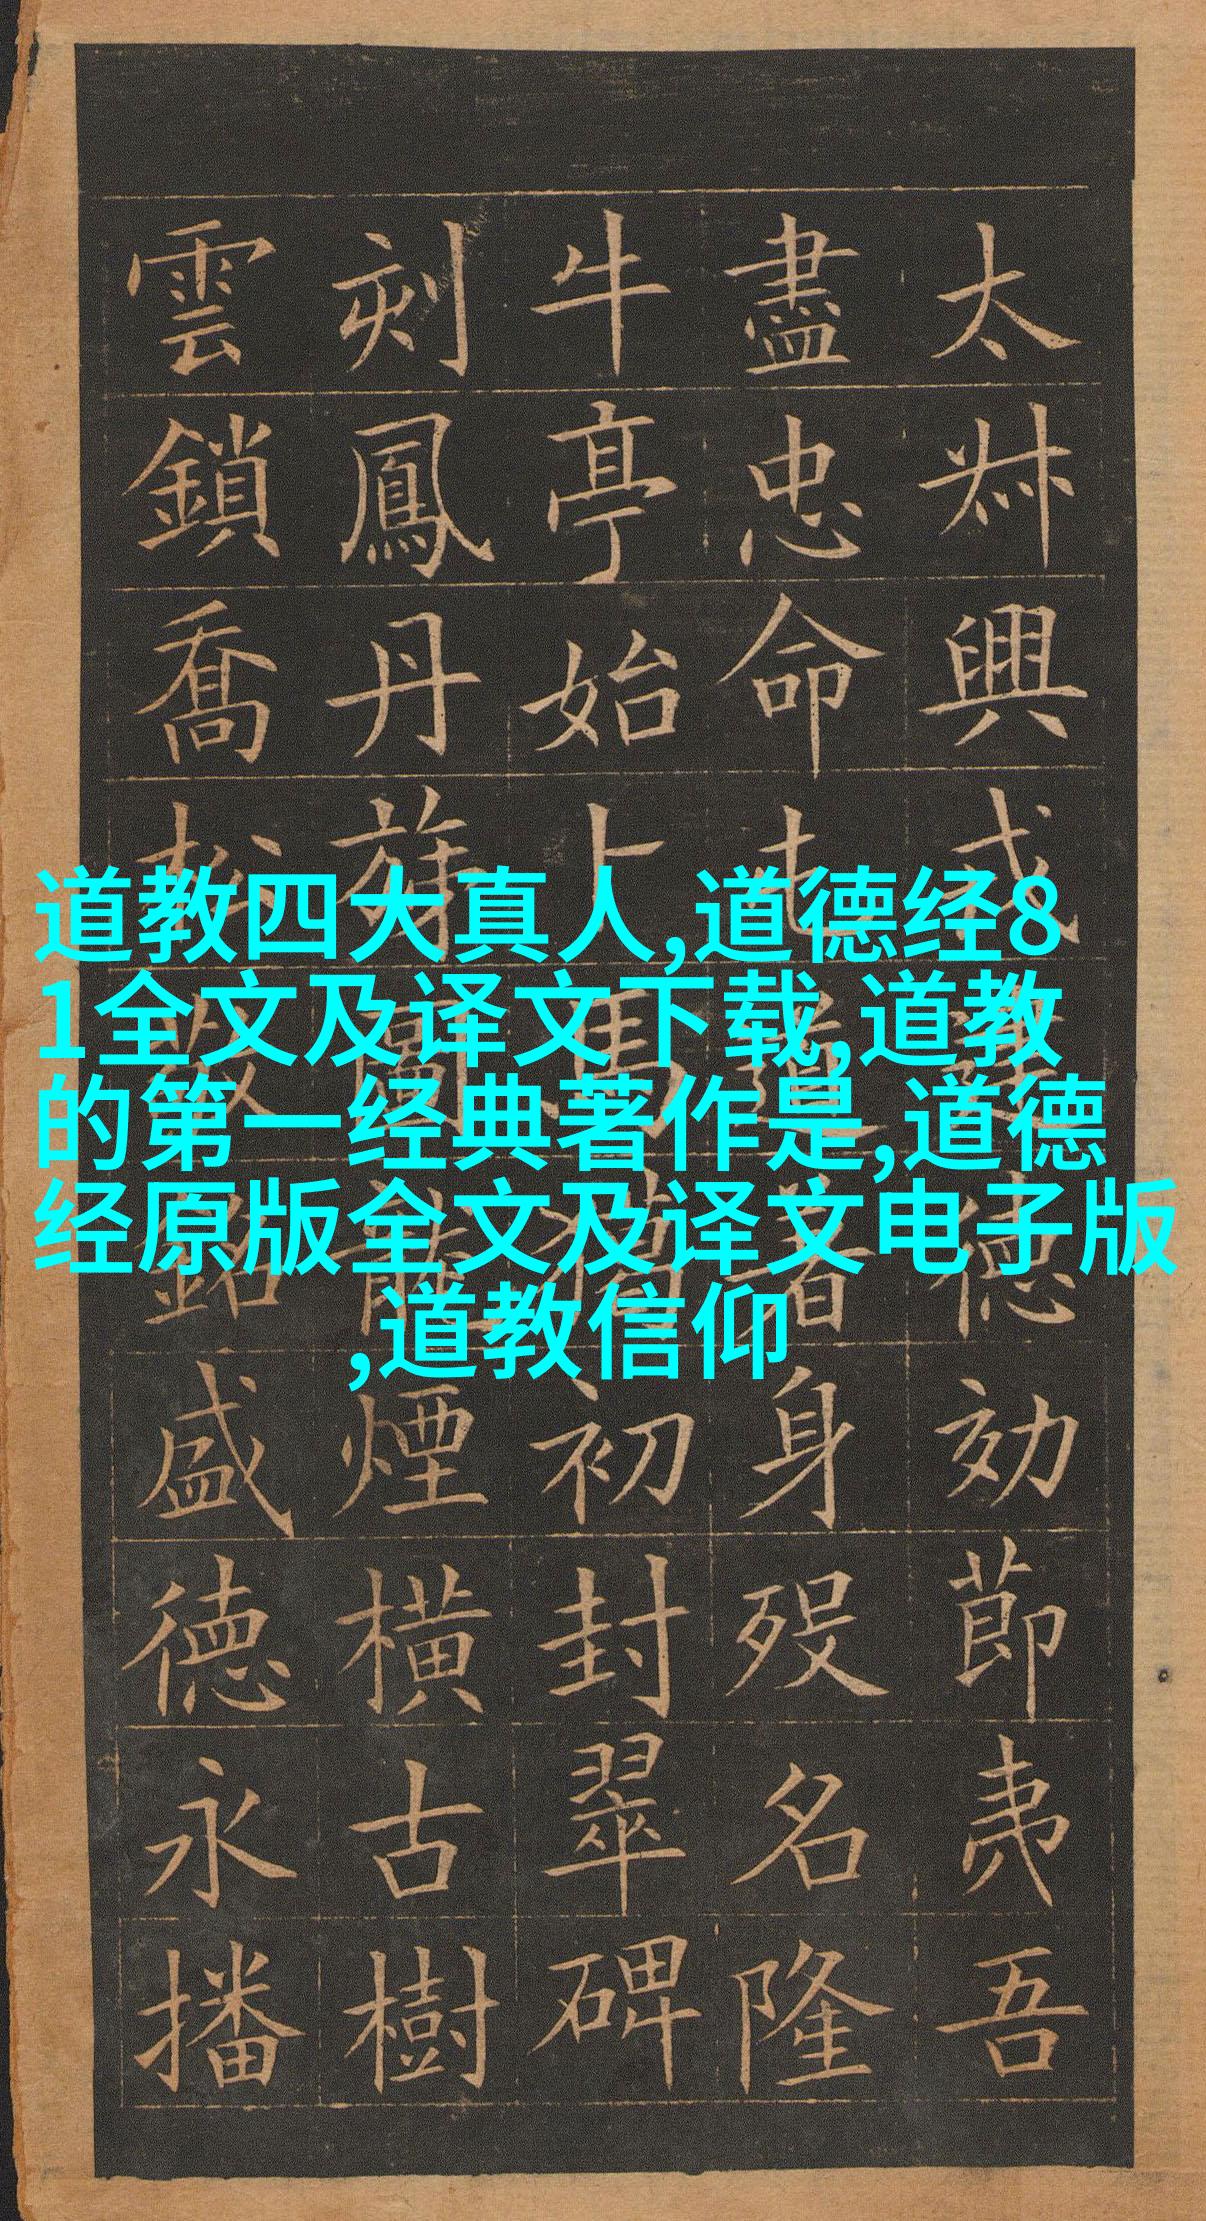 道教四大真人,道德经8
1全文及译文下载,道教
的第一经典著作是,道德
经原版全文及译文电子版
,道教信仰
太叔興戎建德効節夷吾
盡忠命屯道著身歿名隆
牛亭始卜馬獵初封翠碑
刻鳳丹圖龍煙橫古樹
雲鎖喬松敬銘盛德永播